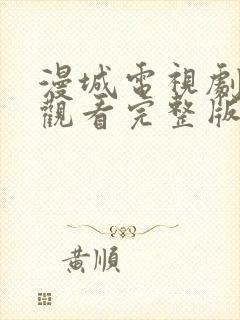 漫城電視劇
觀看完整版
黃順